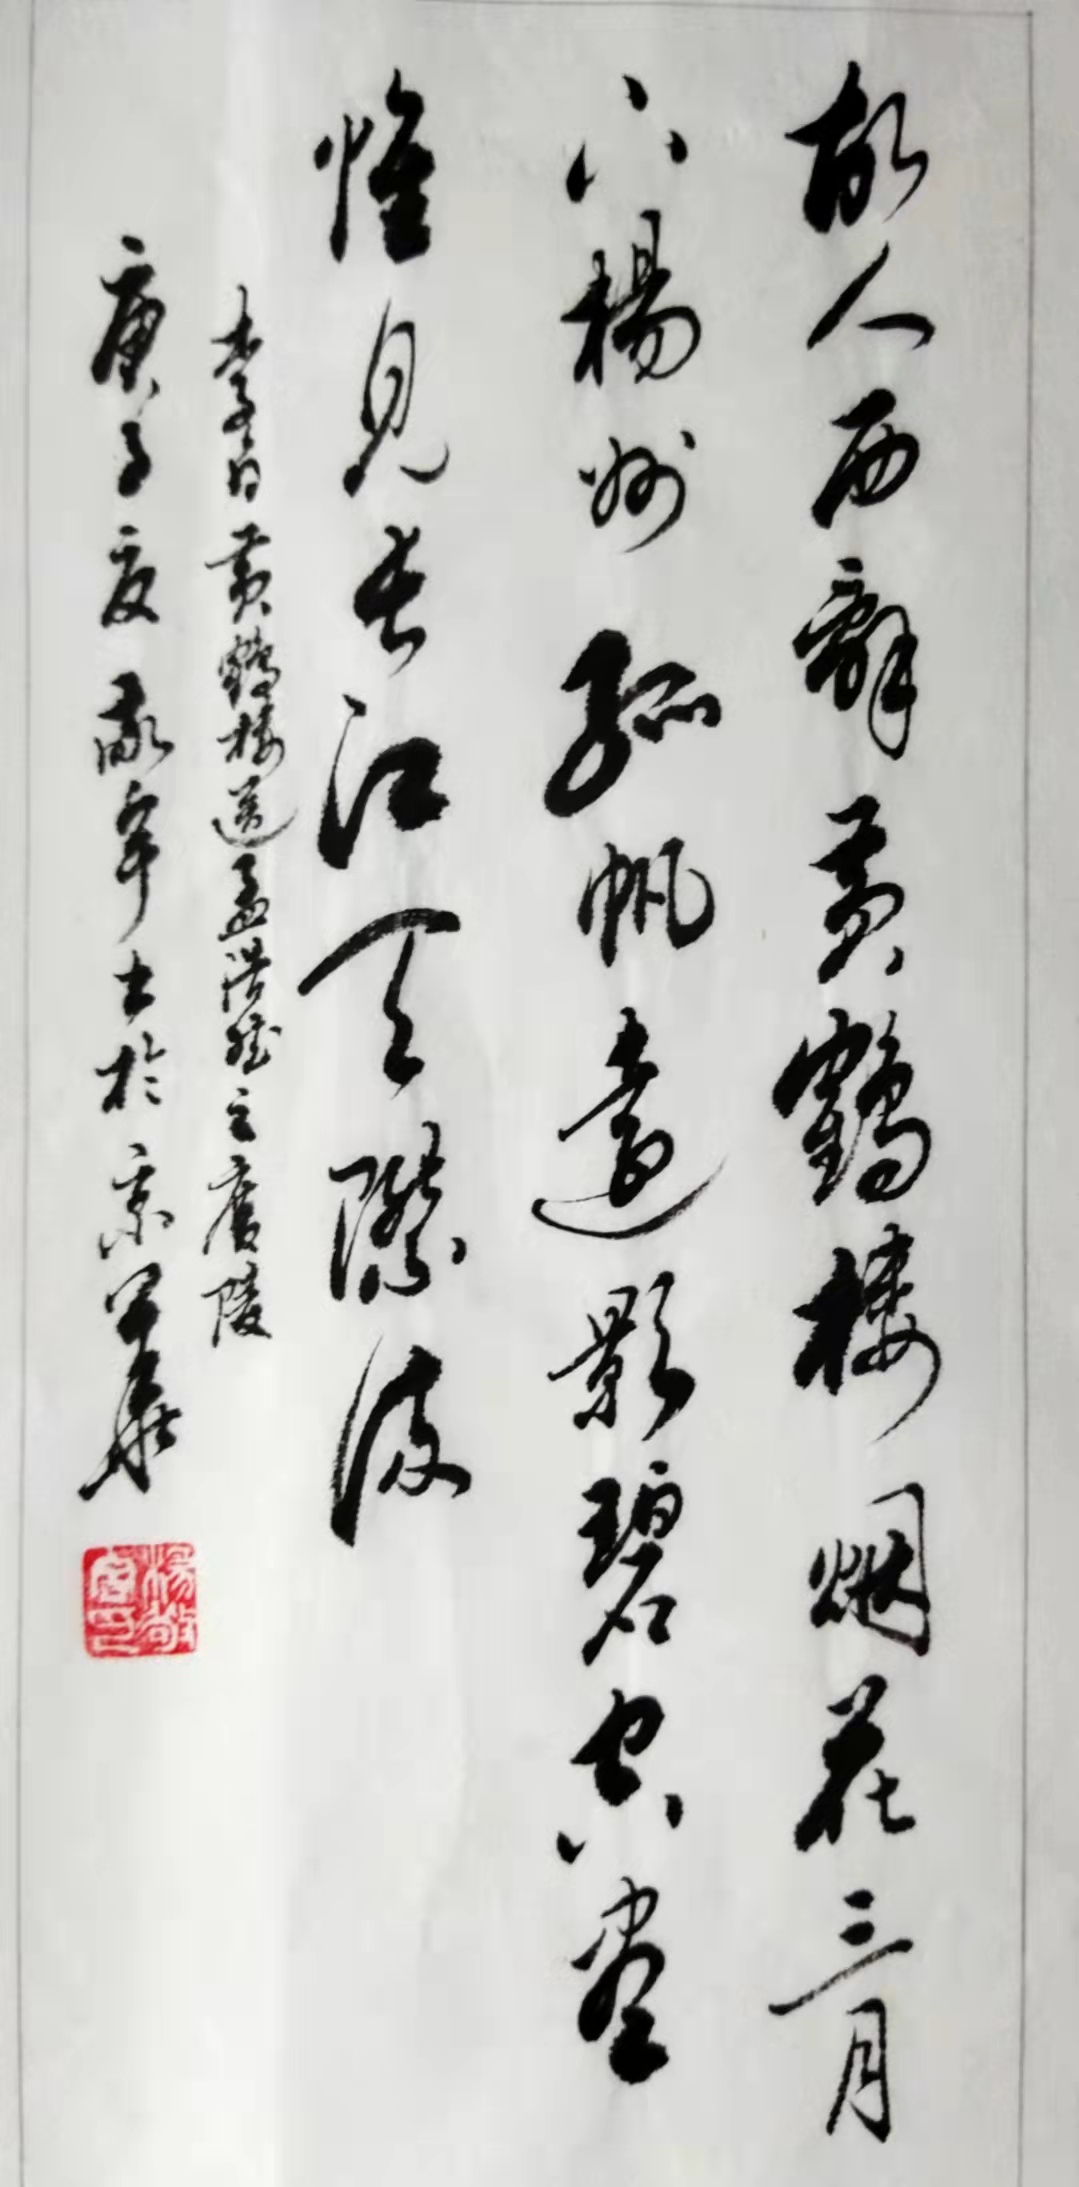 故人西辭黄鶴楼烟花三月
下楊州孤帆遠影碧空盡
惟見長江天際流
李白黄鶴楼送孟浩然之廣陵
庚子夏敬书於京華